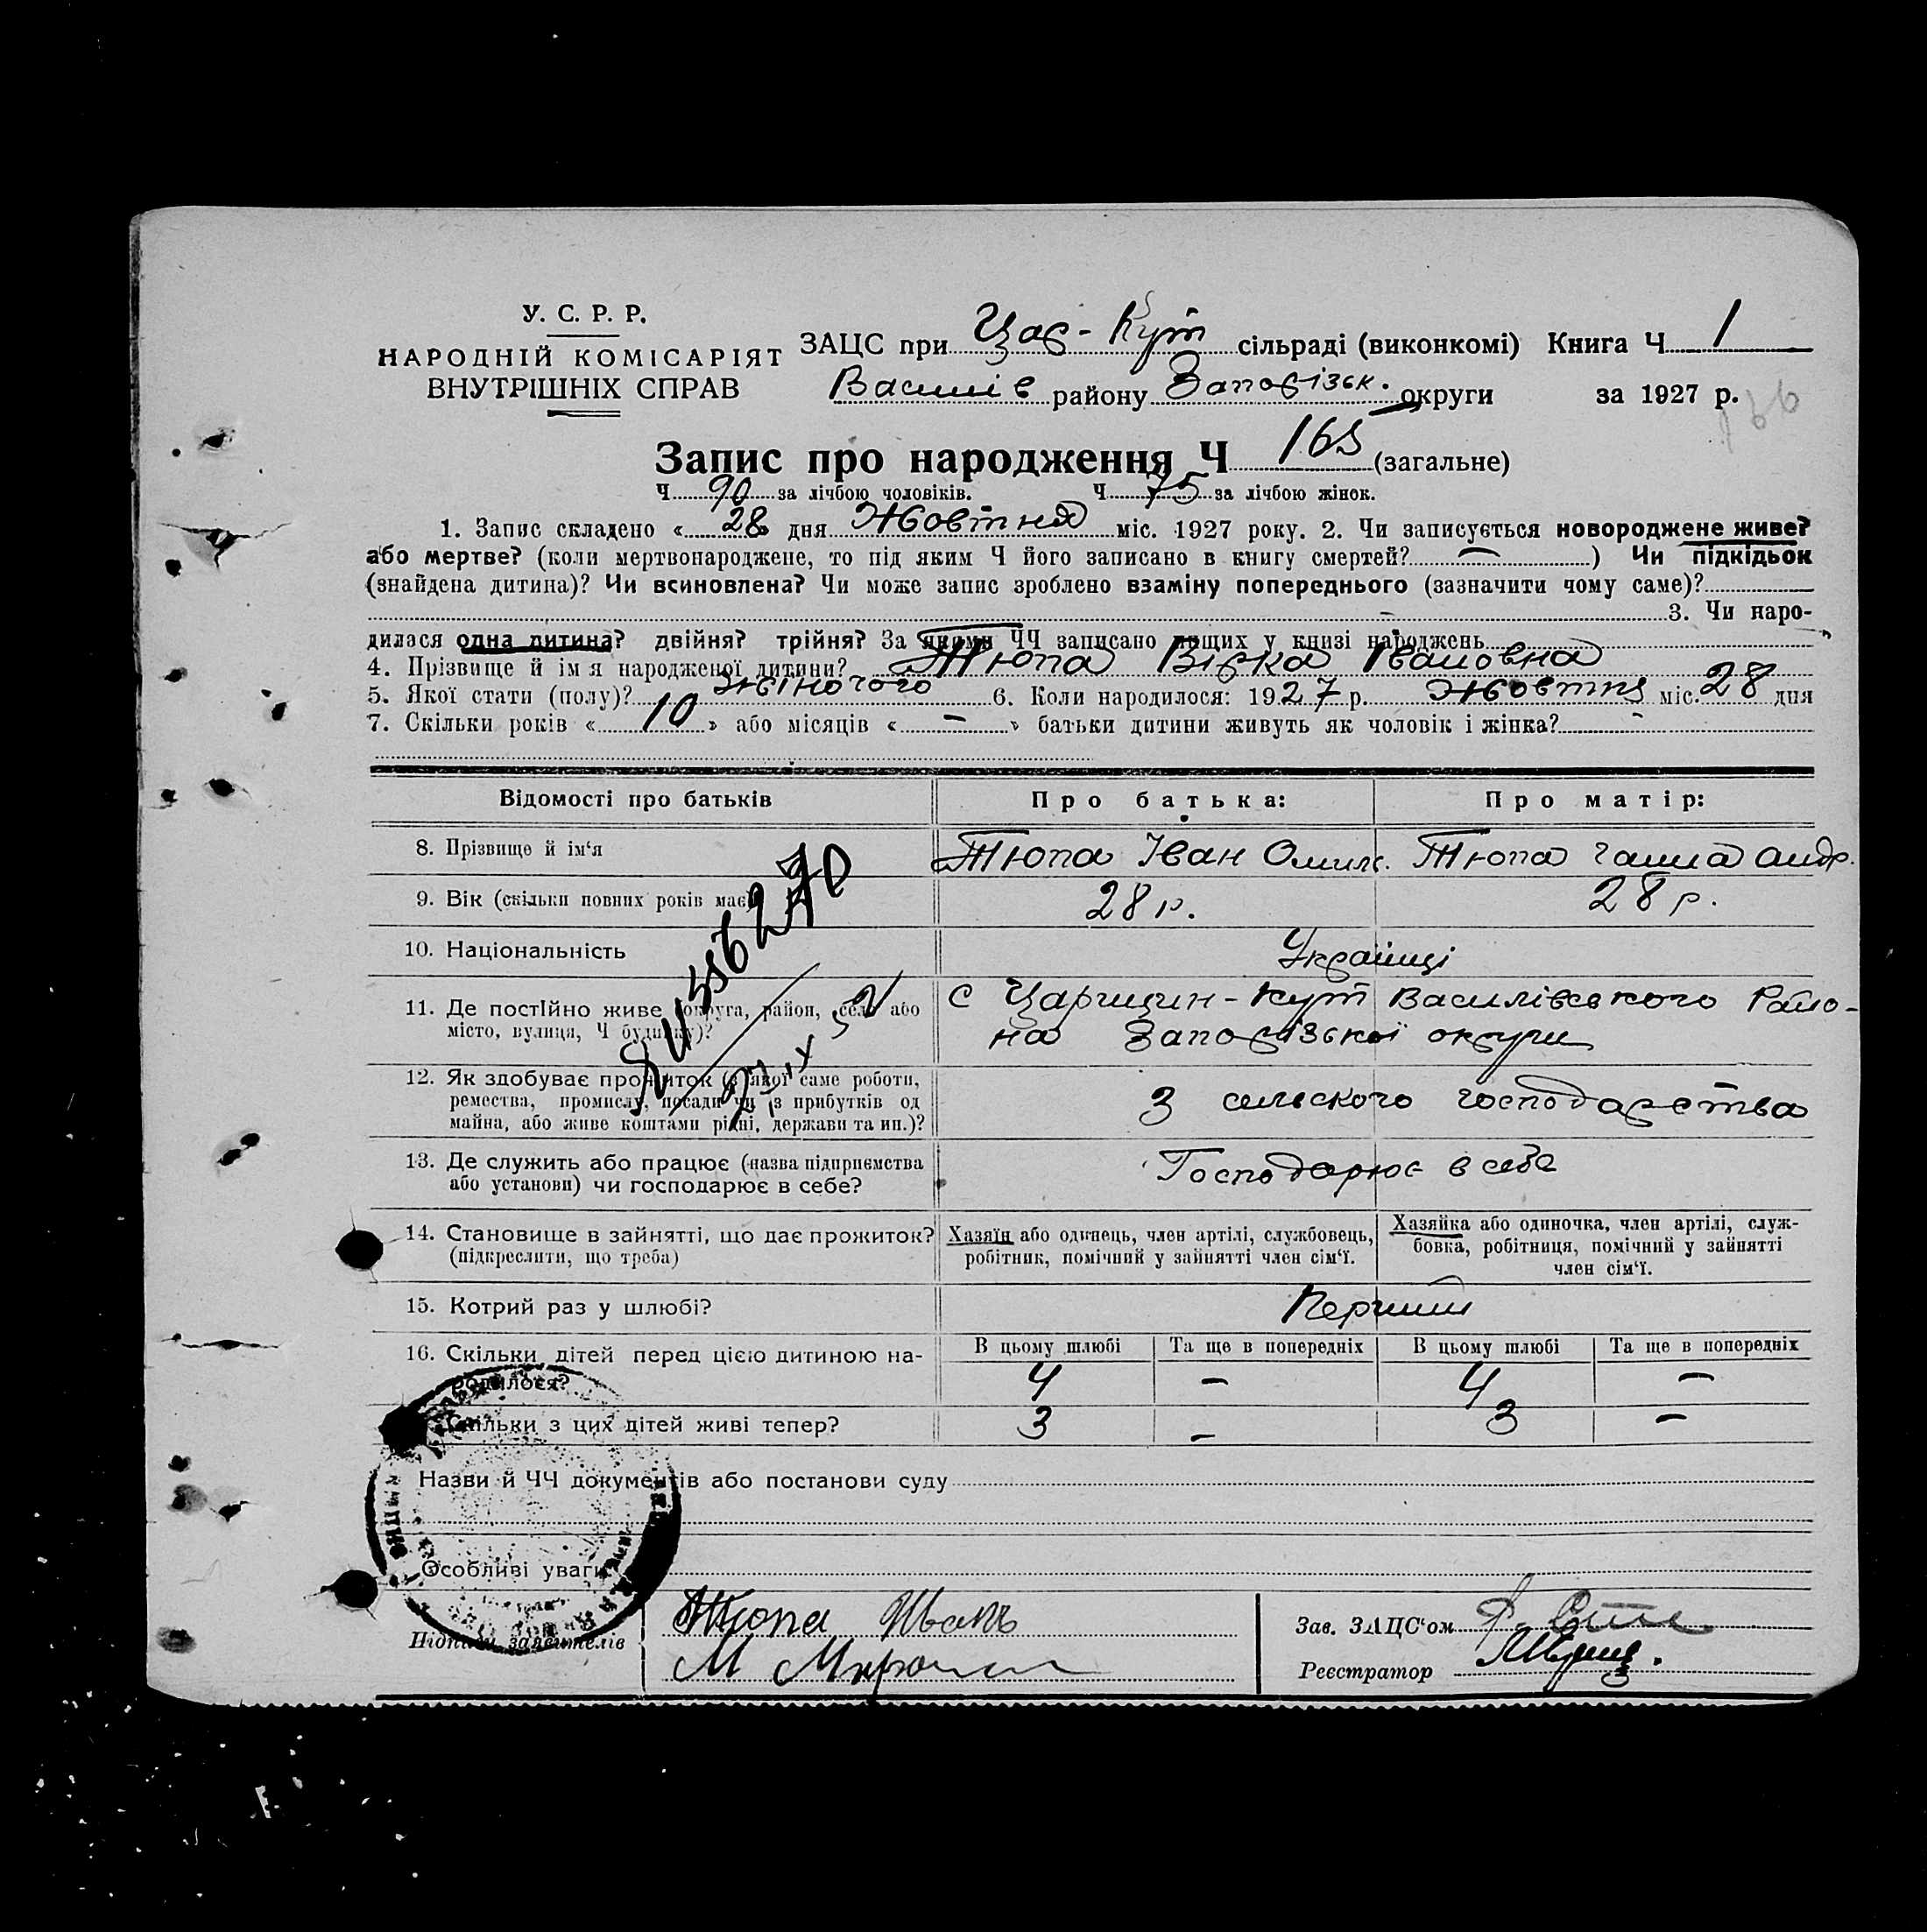 У. С. Р. Р.
НАРОДНІЙ КОМІСАРІЯТ
ВНУТРІШНІХ СПРАВ
ЗАЦС при Цар-Кут сільраді (виконкомі) Книга Ч 1
Василів району Запорізьк. округи за 1927 р.
Запис про народження Ч 165 (загальне)
Ч 90 за лічбою чоловіків. Ч 75 за лічбою жінок.
1. Запис складено « 28 » дня Жовтня міс. 1927 року. 2. Чи записується новороджене живе?
або мертве? (коли мертвонароджене, то під яким Ч його записано в книгу смертей? — ) Чи підкідьок
(знайдена дитина)? Чи всиновлена? Чи може запис зроблено взаміну попереднього (зазначити чому саме)?
3. Чи наро-
дилася одна дитина? двійня? трійня? За якими ЧЧ записано инших у книзі народжень
4. Прізвище й ім'я народженої дитини? Тюпа Вірка Івановна
5. Якої стати (полу)? жіночого 6. Коли народилося: 1927 р. Жовтня міс. 28 дня
7. Скільки років « 10 » або місяців « — » батьки дитини живуть як чоловік і жінка? -
Відомості про батьків Про батька: Про матір:
8. Прізвище й ім'я Тюпа Іван Тюпа Ганна Андр.
9. Вік (скільки повних років має) 28 р. 28 р.
10. Національність Українці
11. Де постійно живе (округа, район, село або с Царицин-Кут Василівського Райо-
місто, вулиця, Ч будинку)? на Запорізької округи
12. Як здобуває прожиток (з якої саме роботи,
ремества, промислу, посади чи з прибутків од
майна, або живе коштами рідні, держави та ин.)? З сельского господарства
13. Де служить або працює (назва підприємства
або установи) чи господарює в себе? Господарює в себе
14. Становище в зайнятті, що дає прожиток?
(підкреслити, що треба)
Хазяїн або одинець, член артілі, службовець,
робітник, помічний у зайнятті член сім'ї.
Хазяйка або одиночка, член артілі, служ-
бовка, робітниця, помічний у зайнятті
член сім'ї.
15. Котрий раз у шлюбі? Перший
16. Скільки дітей перед цією дитиною на-
родилося?
В цьому шлюбі Та ще в попередніх В цьому шлюбі Та ще в попередніх
4 — 4 —
Скільки з цих дітей живі тепер? 3 — 3 —
Назви й ЧЧ документів або постанови суду
Особливі уваги
Підписи заявителів Тюпа Иванъ
Зав. ЗАЦС'ом
Реєстратор